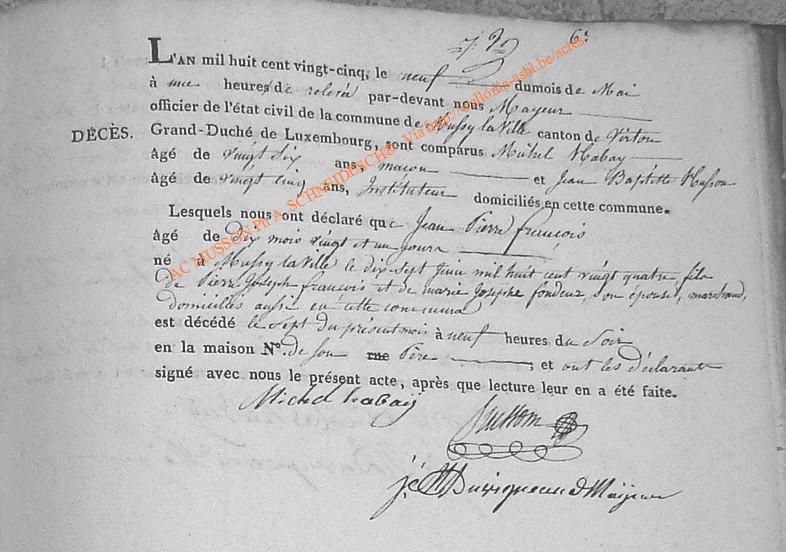 6e
L'AN mil huit cent vingt-cinq, le neuf du mois de Mai
à une heures de relevée par-devant nous Mayeur
officier de l'état civil de la commune de Mussy la Ville canton de Virton
DÉCÈS. Grand-Duché de Luxembourg, sont comparus Michel Habay
âgé de vingt six ans, macon et Jean Baptiste Husson
âgé de vingt cinq ans, Instituteur domiciliés en cette commune.
Lesquels nous ont déclaré que Jean Pierre françois
âgé de dix mois vingt et un jours
né à Mussy la Ville le dix sept Juin mil huit cent vingt quatre fils
de Pierre Joseph francois et de marie Josephe fondeur, son épouse, marchand,
domiciliés aussi en cette commune
est décédé le sept du présent mois à neuf heures du Soir
en la maison N°. de son rue Père et ont les déclarants
signé avec nous le présent acte, après que lecture leur en a été faite.
Michel habaÿ
husson
AC MUSSON Pl A. SCHNEIDESCH© Via http://wallonia-asbl.be/actes